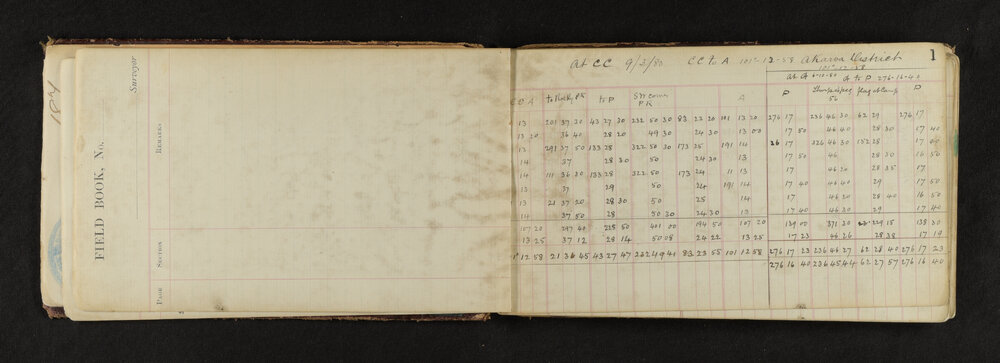 184
FIELD BOOK, No.
Surveyor
PAGE SECTION REMARKS
1
At CC 9/2/80 CC to A 101°-12-58 Akaroa District
101°-12-58
at A 6-10-80 A to P 276-16-40
A to Rocky PK to P SW corner PK A
P flag at Camp P
13 201 37 30 43 27 30 232 50 30 83 23 20 101 13 20 276 17 236 46 30 62 29 276 17
13 20 36 40 28 20 49 30 24 30 13 00 17 50 46 40 28 30 17 40
13 291 37 50 133 28 322 50 30 173 25 191 14 17 326 46 30 152 28 17
14 37 28 30 50 24 30 13 17 50 46 28 30 16 50
14 111 36 30 133 28 322 50 173 24 11 13 17 46 20 28 35 17
13 37 29 50 24 191 14 17 40 46 40 29 17 50
13 21 37 20 28 30 50 25 14 17 46 20 28 40 16 50
14 37 50 28 50 20 24 30 13 17 40 46 20 29 17 40
107 20 297 40 225 50 401 00 194 50 107 20 139 00 371 30 229 15 138 30
13 25 37 12 28 14 50 08 24 22 13 25 17 23 46 26 28 38 17 19
12 58 21 36 45 43 27 47 232 49 41 83 23 55 101 12 58 276 17 23 236 46 27 62 28 40 276 17 23
276 16 40 236 45 44 62 27 57 276 16 40